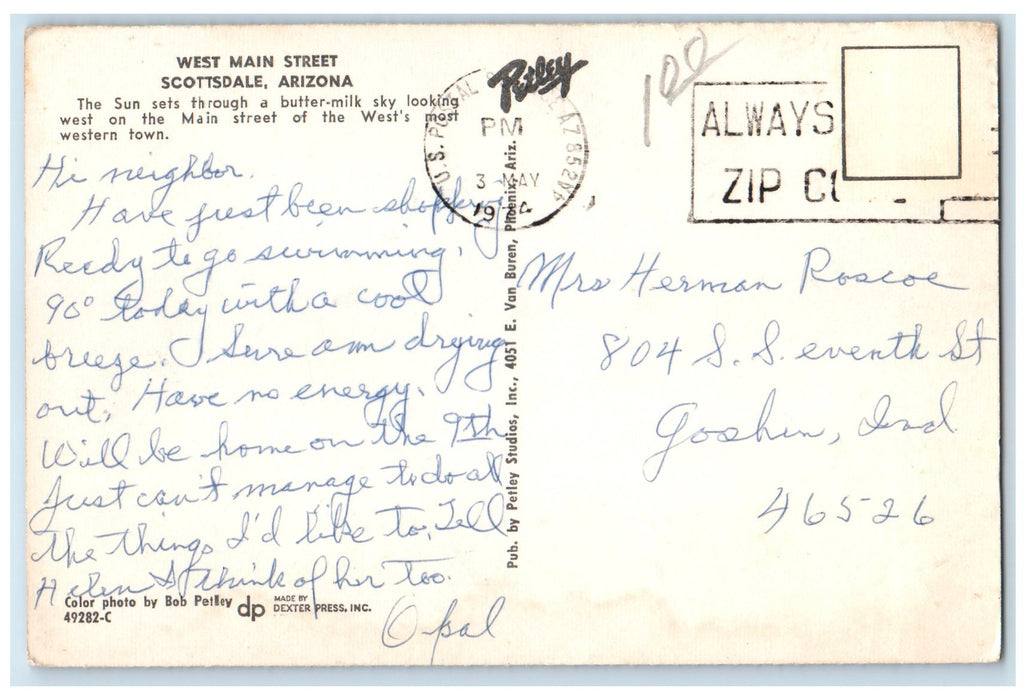 WEST MAIN STREET
SCOTTSDALE, ARIZONA
The Sun sets through a butter-milk sky looking
west on the Main street of the West's most
western town.
Hi neighbor.
Have just been shopping
Ready to go swimming.
90° today with a cool
breeze. I sure am drying
out. Have no energy.
Will be home on the 9th
Just can't manage to do all
the things I'd like to. Tell
Helen I think of her too.
Opal
Color photo by Bob Petley
49282-C
dp
MADE BY
DEXTER PRESS, INC.
Pub. by Petley Studios, Inc., 4051 E. Van Buren, Phoenix, Ariz.
Petley
U.S. POSTAL
AZ
PM
3 MAY
100
ALWAYS
ZIP
Mrs Herman Roscoe
804 S. S. eventh St
Goshen, Ind
46526